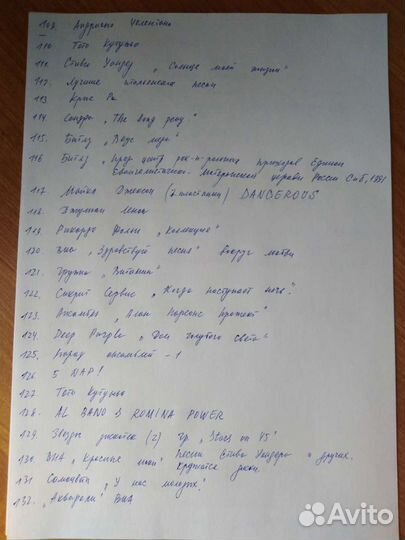 109 Адриано Челентано
110. Тото Кутуньо
111. Стиви Уондер „Солнце моей жизни"
112. Лучшие итальянские песни
113 Крис Ри
114. Сандра „The long play."
115. Битлз „Вкус меда"
116 Битлз „Пред центр рок-н-рольных приходов Единой
Евангелистическо-Лютеранской церкви России Спб, 1991
117. Майкл Джексон (2 пластинки) DANGEROUS
118. Джулиан Ленон
119. Рикардо Фольи „Коллекция"
120. ВИА „Здравствуй песня" вокруг любви
121. Группа „Витамин"
122. Сикрит Сервис „Когда наступает ночь."
123. Ансамбль „Алан Парсонс Проджект"
124. Deep Purple „Дом голубого света"
125. Парад ансамблей - 1
126. 5 NAP!
127. Тото Кутуньо
128. AL BANO & ROMINA POWER
129. Звезды дискотек (2) гр. „Stars on 45"
130. ВИА „Красные маки" Песни Стиви Уондера и других.
Кружатся диски.
131 Самоцветы „У нас молодых."
132. „Акварели" ВИА
Avito